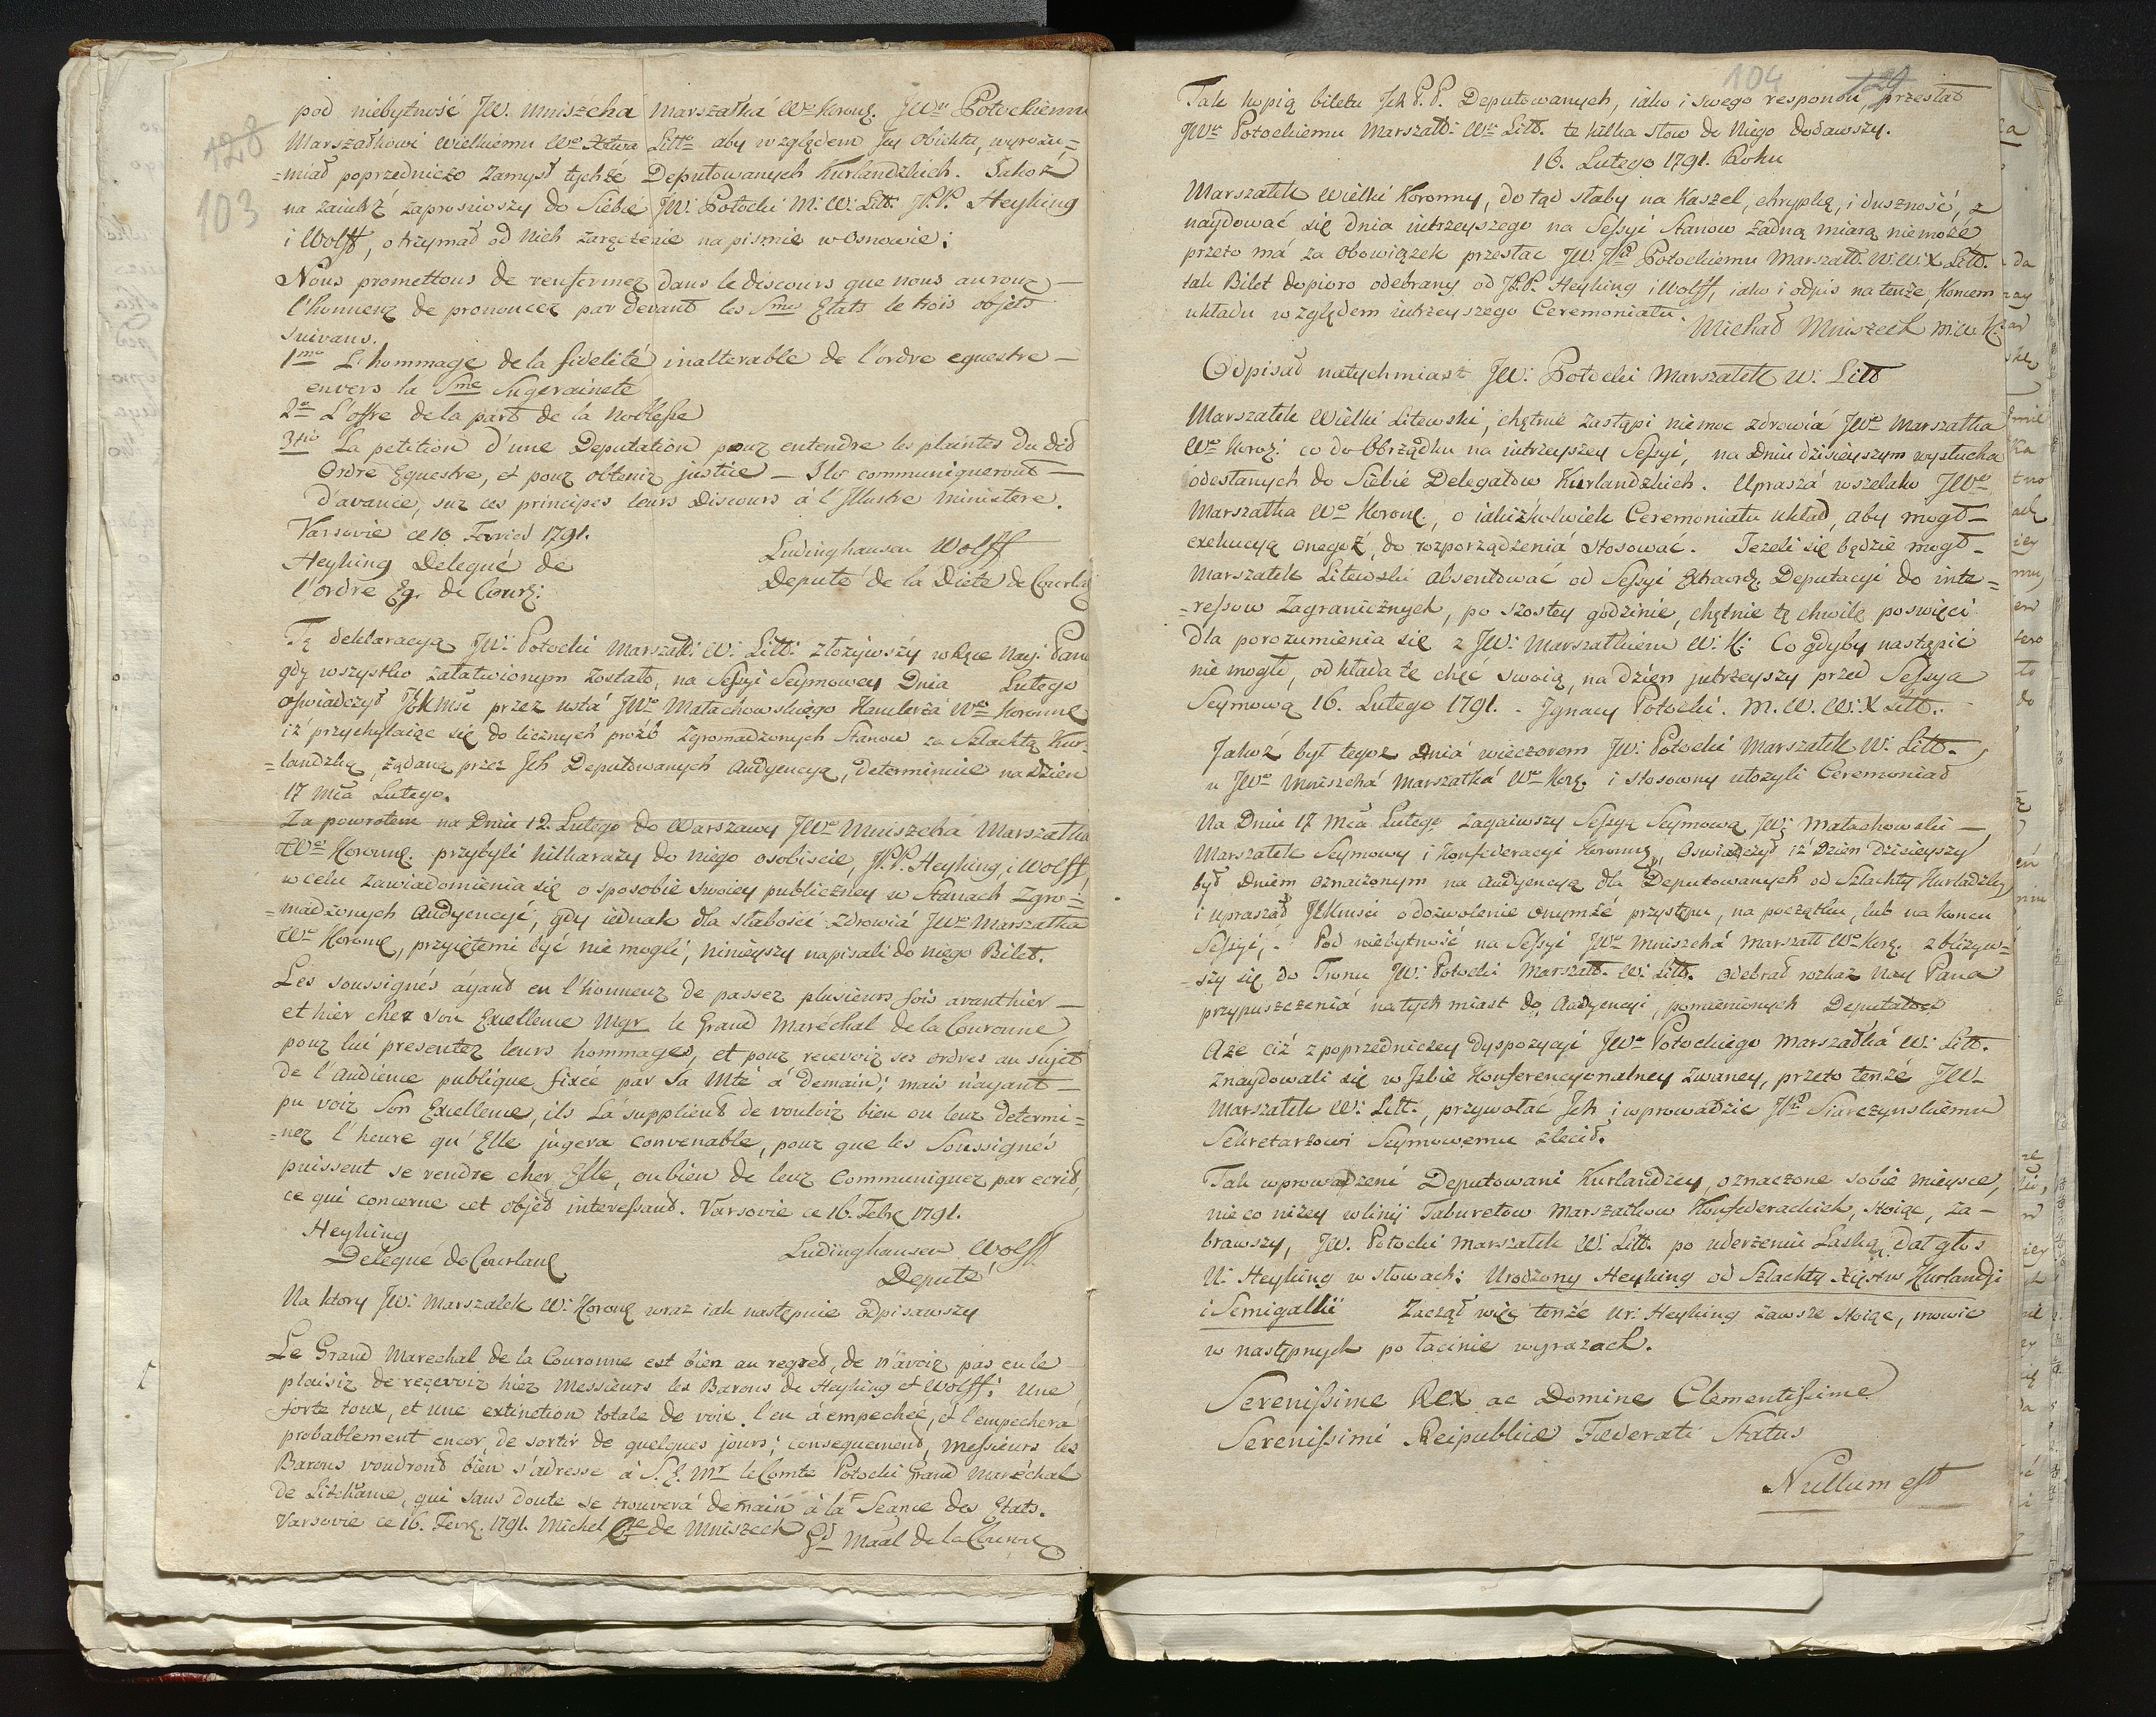 128
103
pod niebytność JW. Mniszcha Marszałka Wo Koronn. JWu Potockiemu
Marszałkowi Wielkiemu Wo Xtwa Litto aby względem Jey Obiektu, wyrozu=
=miał poprzedniczo zamysł tychże Deputowanych Kurlandzkich. Jakoż
na zaiutrz zaprosiwszy do Siebie JW: Potocki M: W: Litt. JP.P. Heyking
i Wolff, otrzymał od nich zaręczenie na piśmie w Osnowie:
Nous promettons de renfermer dans le discours que nous aurons
l'honneur de prononcer par devant les Smes Etats le trois objets
suivans.
1mo L'hommage de la fidelité inalterable de l'ordre equestre
envers la Sme Sugerainete
2o L'offre de la part de la Noblesse
3tio La petition d'une Deputation pour entendre les plaintes du dit
Ordre Equestre, et pour obtenir justice — Ils communiqueront
d'avance, sur ces principes leurs Discours à l'Illustre Ministere.
Varsovie ce 10 Fevried 1791.
Heyking Delegué de
l'ordre Eq. de Courl:
Ludinghausen Wolff
Deputé de la Diete de Courl
Tę deklaracyą JW: Potocki Marszałk: W: Litt: złożywszy w Ręce Nay: Pana
gdy wszystko załatwionym zostało, na Sessyi Seymowey Dnia Lutego
Oświadczył JKMść przez usta JWo Małachowskiego Kanclerza Wo Koronne
iż przychylaiąc się do licznych proźb Zgromadzonych Stanow za Szlachtą Kur=
=landzką, żądaną przez Ich Deputowanych Audyencyą, determinuie na Dzien
17 Mca Lutego.
Za powrotem na Dniu 12. Lutego do Warszawy JWo Mniszcha Marszałka
Wo Koronne. przybyli kilkarazy do niego osobiscie, JP.P. Heyking, i Wolff,
w celu zawiadomienia się o sposobie swoiey publiczney w Stanach Zgro=
=madzonych Audyencyi, gdy iednak dla słabości zdrowia JWo Marszałka
Wo Koronne, przyiętemi być nie mogli, ninieyszy napisali do niego Bilet.
Les soussignés ayand eu l'honneur de passer plusieurs fois avanthier
et hier chez Son Excellence Mgr le Grand Maréchal de la Couronne
pour lui presenter leurs hommages, et pour recevoir ses ordres au sujet
de l'Audience publique fixée par Sa Mté à demain; mais n'ayant
pu voir Son Excellence, ils La supplient de vouloir bien ou leur determi=
=ner l'heure qu'Elle jugera convenable, pour que les Soussignés
puissent se rendre chez Elle, oubien de leur Communiquer par ecrit,
ce qui concerne cet objet interessant. Varsovie ce 16. Febr. 1791.
Heyking
Delegué de Courland
Ludinghausen Wolff
Deputé
Na ktory JW: Marszałek W: Koronn wraz iak następnie odpisawszy
Le Grand Marechal de la Couronne est bien au regred, de n'avoir pas eu le
plaisir de reçevoir hier Messieurs les Barons de Heyking et Wolff; Une
forte toux, et une extinction totale de voix l'en à empechée, et l'empechera
probablement encor, de sortir de quelques jours; consequemend, Messieurs les
Barons voudrond bien s'adresse à S. E. Mr le Comte Potocki Grand Maréchal
de Lithuanie, qui sans doute se trouvera demain à la Seance des Etats.
Varsovie ce 16. Fevr. 1791. Michel Cte de Mniszech
Gd Maal de la Couron
104 129
Tak kopią biletu Jch P.P. Deputowanych, iako i swego responsu, przesłał
JWu Potockiemu Marszałk: Wu Litt. te kilka słow do niego dodawszy.
16. Lutego 1791. Roku
Marszałek Wielki Koronny, do tąd słaby na Kaszel, chrypkę, i dusznosć, z
naydować się dnia iutrzeyszego na Sessyi Stanow żadną miarą niemoże
przeto má za Obowiązek przesłać JW. JPu Potockiemu Marszałk. W: W: X Litt.
tak Bilet dopioro odebrany od JP.P. Heyking i Wolff, iako i odpis na tenże, Koncem
układu względem iutrzeyszego Ceremoniału.
Michał Mniszech M. W. K.
Odpisał natychmiast JW: Potocki Marszałek W: Litt
Marszałek Wielki Litewski, chętnie zastąpi niemoc zdrowia JWo Marszałka
Wo Koron: co do Obrządku na iutrzeyszey Sessyi, na Dniu dzisieyszym wysłucha
odesłanych do Siebie Delegatow Kurlandzkich. Uprasza wszelako JWo
Marszałka Wo Koronn., o iakiżkolwiek Ceremoniału układ, aby mogł
exekucyą onegoż, do rozporządzenia stosować. Jezeli się będzie mogł
Marszałek Litewski absentować od Sessyi Extraord. Deputacyi do inte=
=ressow Zagranicznych, po szostey godzinie, chętnie tę chwilę poswięci
dla porozumienia się z JW: Marszałkiem W: K: Co gdyby nastąpić
nie mogło, odkłada tę chęć swoią, na dzień jutrzeyszy przed Sessya
Seymową 16. Lutego 1791. - Jgnacy Potocki. M. W. W: X Litt.
Jakoż był tegoż dnia wieczorem JW: Potocki Marszałek W: Litt.
u JWo Mniszchá Marszałka Wo Kor. i stosowny ułozyli Ceremoniał
Na Dniu 17 Mca Lutego zagaiwszy Sessyą Seymową JW: Małachowski
Marszałek Seymowy i Konfederacyi Koronney, Oswiadczył iż Dzien Dzisieyszy
był Dniem oznaczonym na Audyencyą dla Deputowanych od Szlachty Kurladzkiey
i upraszał JKMości o dozwolenie onymże przystępu, na początku, lub na koncu
Sessyi, - Pod niebytność na Sessyi JWo Mniszchá Marszałk Wo Kor. zbliżyw=
=szy się do Tronu JW: Potocki Marszałk. W: Litt. odebrał rozkaz Nay Pana
przypuszczenia natychmiast do Audyencyi, pomienionych Deputatow
Aże ciż z poprzedniczey dyspozycyi JWo Potockiego Marszałka W: Litt.
znaydowali się w Izbie Konferencyonalney zwaney, przeto tenże JW
Marszałek W: Litt., przywołać Jch i wprowadzic JPu Siarczynskiemu
Sekretarzowi Seymowemu zlecił.
Tak wprowadzeni Deputowani Kurlandzcy, oznaczone sobie mieysce,
nieco niżey w linij Taburetow Marszałkow Konfederackich, stoiąc, za=
brawszy, JW. Potocki Marszałek W: Litt. po uderzeniu Laską, dał głos
U: Heyking w słowach: Urodzony Heyking od Szlachty Xięstw Kurlandji
i Semigallii Zaczął więc tenże Ur: Heyking zawsze stoiąc, mowic
w następnych po łacinie wyrazach.
Serenissime Rex ac Domine Clementissime
Serenissimi Reipublicæ Fæderati Status
Nullum est